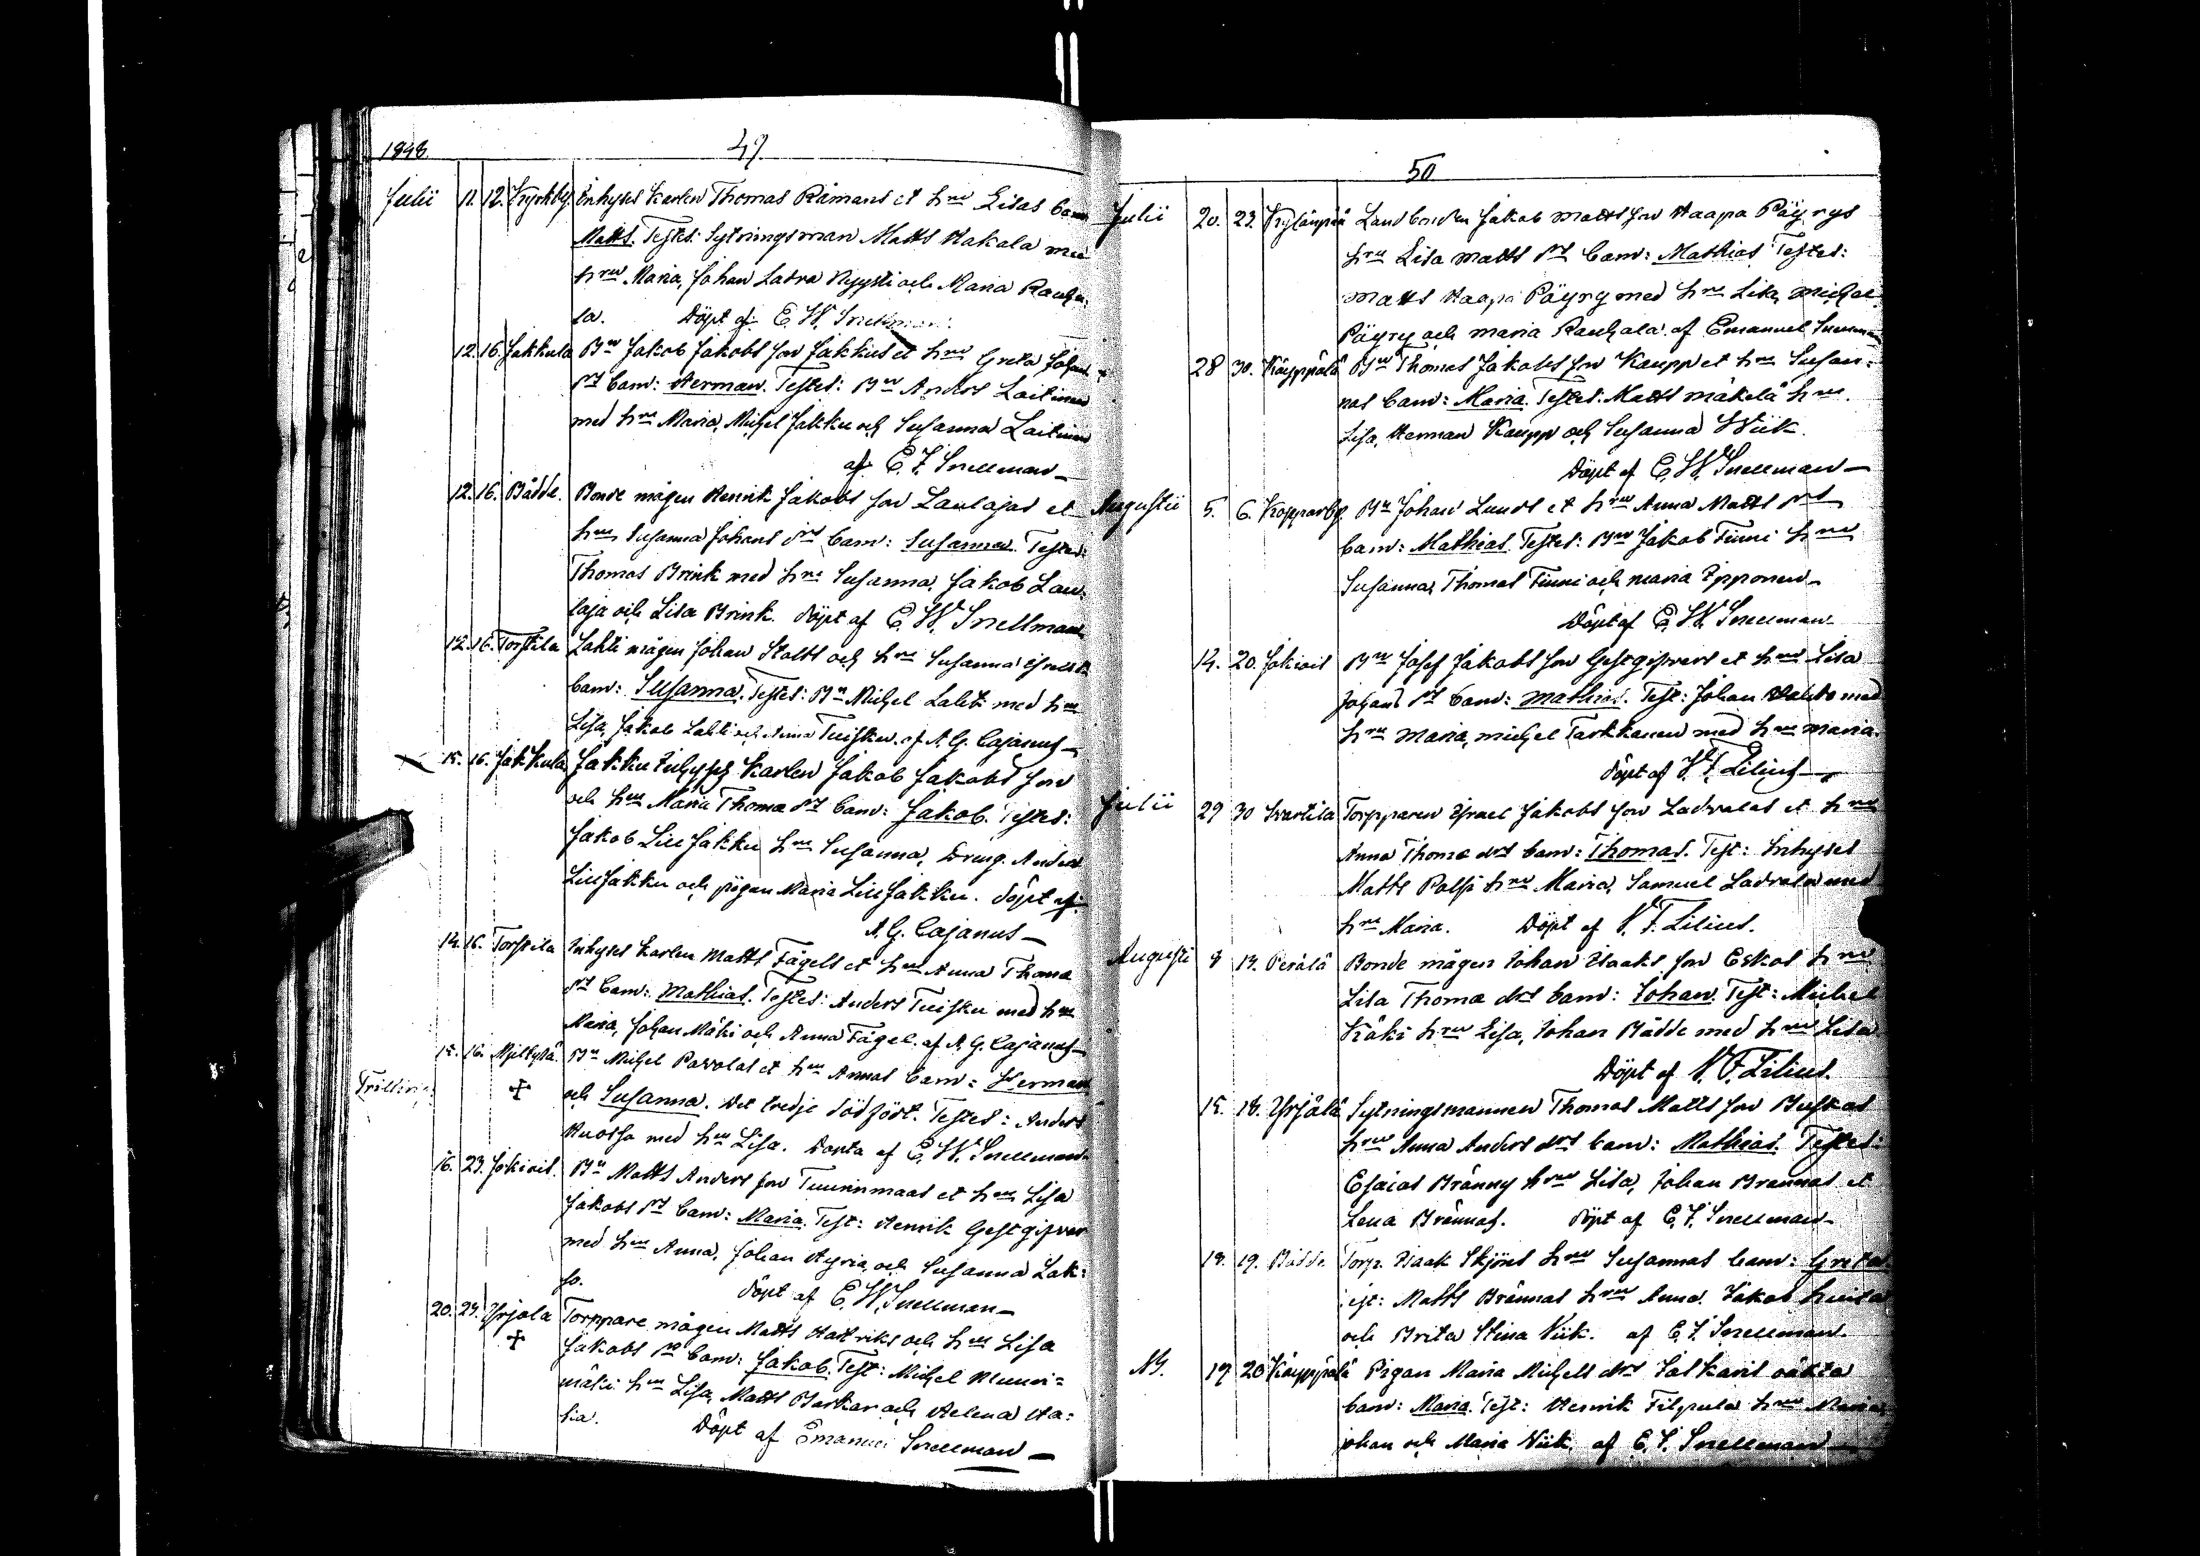 1848.
49
Julii 11. 12. Kyrkby. Inhyses karlen Thomas Råmans et hru Lisas barn
Matts. Testes: Sytningsman Matts Hakala med
hru Maria, Johan Ladva Nyysti och Maria Rauha:
la. Döpt af E. W. Snellman.
12. 16. Jakkula Bn Jakob Jakobs son Jakkus et hru Greta Johans
dr barn: Herman. Testes: Bn Anders Laitinen
med hru Maria, Michel Jakku och Susanna Laitinen
af E. F. Snellman
12. 16. Bådde. Bonde mågen Henrik Jakobs son Laulajas et
hru Susanna Johans dr barn: Susanna. Testes:
Thomas Brink med hru Susanna, Jakob Lau:
laja och Lisa Brink. Döpt af E. W. Snellman
12. 16. Torstila Lahti mågen Johan Stolts och hru Susanna
barn: Susanna. Testes: Bn Michel Lahti med hru
Lisa, Jakob Lahti och Anna Tuisku. af A. G. Cajanus
15. 16. Jakkula Jakku Inhyses karlen Jakob Jakobs son
och hru Maria Thomæ dr barn: Jakob. Testes:
Jakob LillJakku hru Susanna, Dreng. Anders
LillJakku och pigan Maria LillJakku. Döpt af
A. G. Cajanus
14. 16. Torstila Inhyses karlen Matts Fågels et hru Anna Thomæ
dr barn: Mathias. Testes: Anders Tuisku med hru
Maria, Johan Mäki och Anna Fågel. af A. G. Cajanus
Bn Michel Pavolas et hru Annas barn: Herman
Trilling
och Susanna. Det tredje dödfödt. Testes: Anders
Huossa med hru Lisa. Döpta af E. W. Snellman
16. 23. Jokivis. Bn Matts Anders son Tuurinmaas et hru Lisa
Jakobs dr barn: Maria. Test: Henrik Gestgifvar
med hru Anna, Johan Hyria, och Susanna Lak:
so. Döpt af E. W. Snellman
20. 24. Yrjälä Torppare mågen Matts och hru Lisa
Jakobs dr barn: Jakob. Test: Michel
mäki hru Lisa, Matts och Helena Ha:
Döpt af Emanuel Snellman
50
Julii 20. 23. Landbonden Jakob Matts son Haapa Päyrys
hru Lisa Matts dr barn: Mathias. Testes:
Matts Haapa Päyry med hru Lisa, Michel
Päyry och Maria Rauhala. af Emanuel Snellman
28 30. Käyppälä Bn Thomas Jakobs son Kaupp et hru Susan:
nas barn: Maria. Testes: Matts Mäkelä hru
Lisa, Herman Kaupp och Susanna Wiik.
Döpt af E. W. Snellman
Augustii 5. 6. Kopparby. Bn Johan Lunds et hru Anna Matts dr
barn: Mathias. Testes: Bn Jakob Finni hru
Susanna, Thomas Finni och Maria Ipponen
Döpt af E. W. Snellman.
14. 20. Jokivis Bn Josef Jakobs son Gestgifvars et hru Lisa
Johans dr barn: Mathias. Test: Johan med
hru Maria, Michel Tarkkanen med hru Maria.
Döpt af V. F. Lilius
Julii 29 30 Svartila Torpparen Israel Jakobs son Ladvalas et hru
Anna Thomæ drs barn: Thomas. Test: Inhyses
Matts hru Maria, Samuel Ladvala med
hru Maria. Döpt af V. F. Lilius.
Augusti 9 14. Perälä Bonde mågen Johan Isaaks son Eskos hru
Lisa Thomæ drs barn: Johan. Test: Michel
Käki hru Lisa, Johan Bådde med hru Lisa
Döpt af V. F. Lilius.
15. 18. Yrjälä Sytningsmannen Thomas Matts son Buskas
hru Anna Anders drs barn: Mathias. Testes:
Esaias Bränny hru Lisa, Johan Brännas et
Lena Brännas. Döpt af E. F. Snellman
18. 19. Bådde. Torp. Isaak Skjöns hru Susannas barn: Greta
Test: Matts Brännas hru Anna. Jakob
och Brita Stina Wiik. af E. F. Snellman.
19 20 Käyppälä Pigan Maria Michels drs oäkta
barn: Maria. Test: Henrik Filppula hru Maria,
Johan och Maria Wiik, af E. F. Snellman